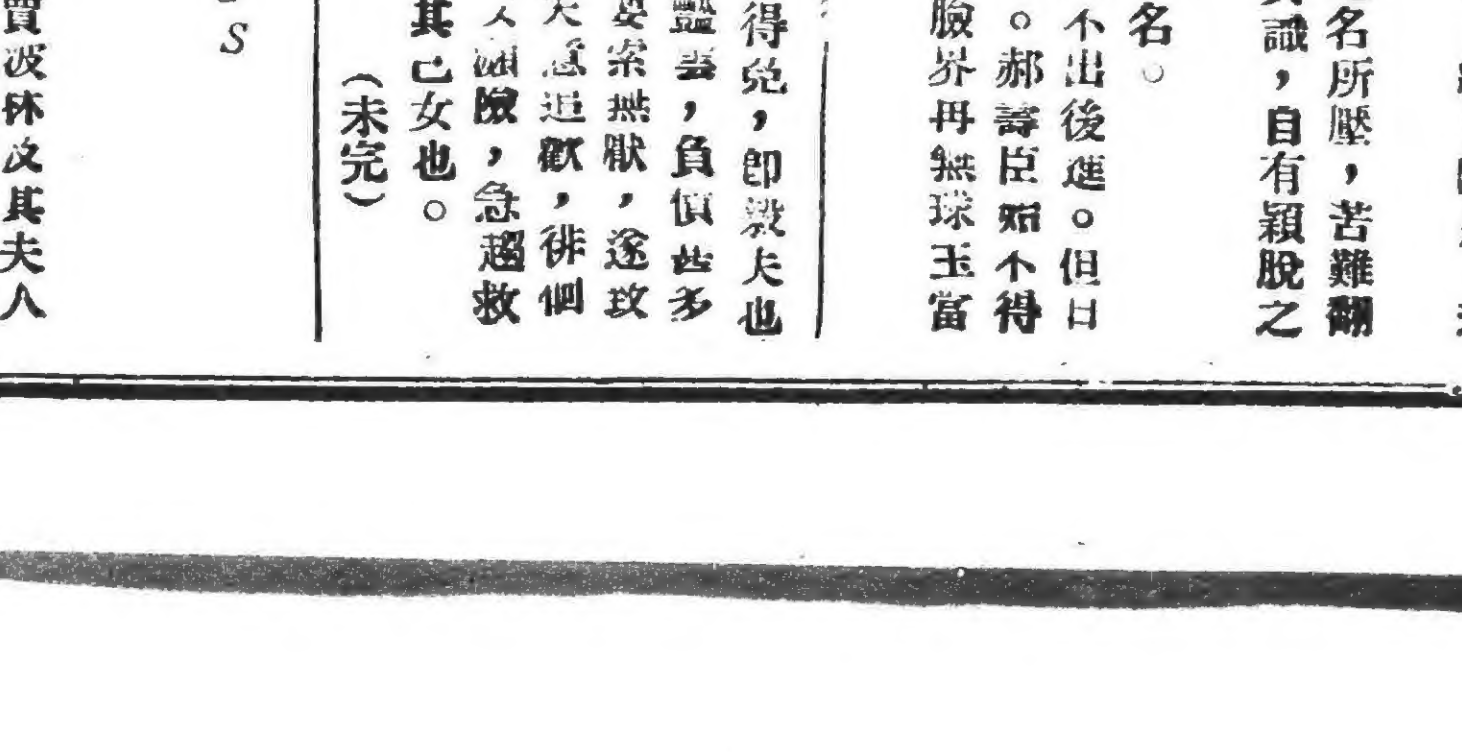 名所壓，苦難翻
識，自有穎脫之
名。
不出後進。但日
。郝壽臣如不得
臉界再無球玉當
得兇，即殺夫也
豔芸，負債甚多
案無獸，遂玫
夫急追歡，徘徊
人涉險，急趨救
其己女也。
（未完）
S
賈波林及其夫人